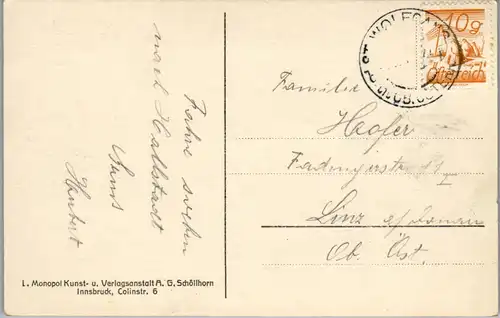 Fahre soeben
nach Hallstadt
Hubert
L. Monopol Kunst- u. Verlagsanstalt A. G. Schöllhorn
Innsbruck, Colinstr. 6
10g
Österreich
ST. WOLFGANG
Familie
Hofer
Fadingerstr.
Linz a/Donau
Ob. Öst.